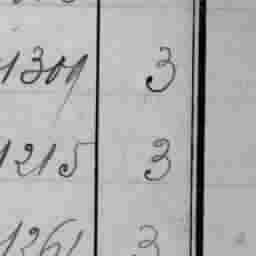 1309 3
1215 3
1261 3